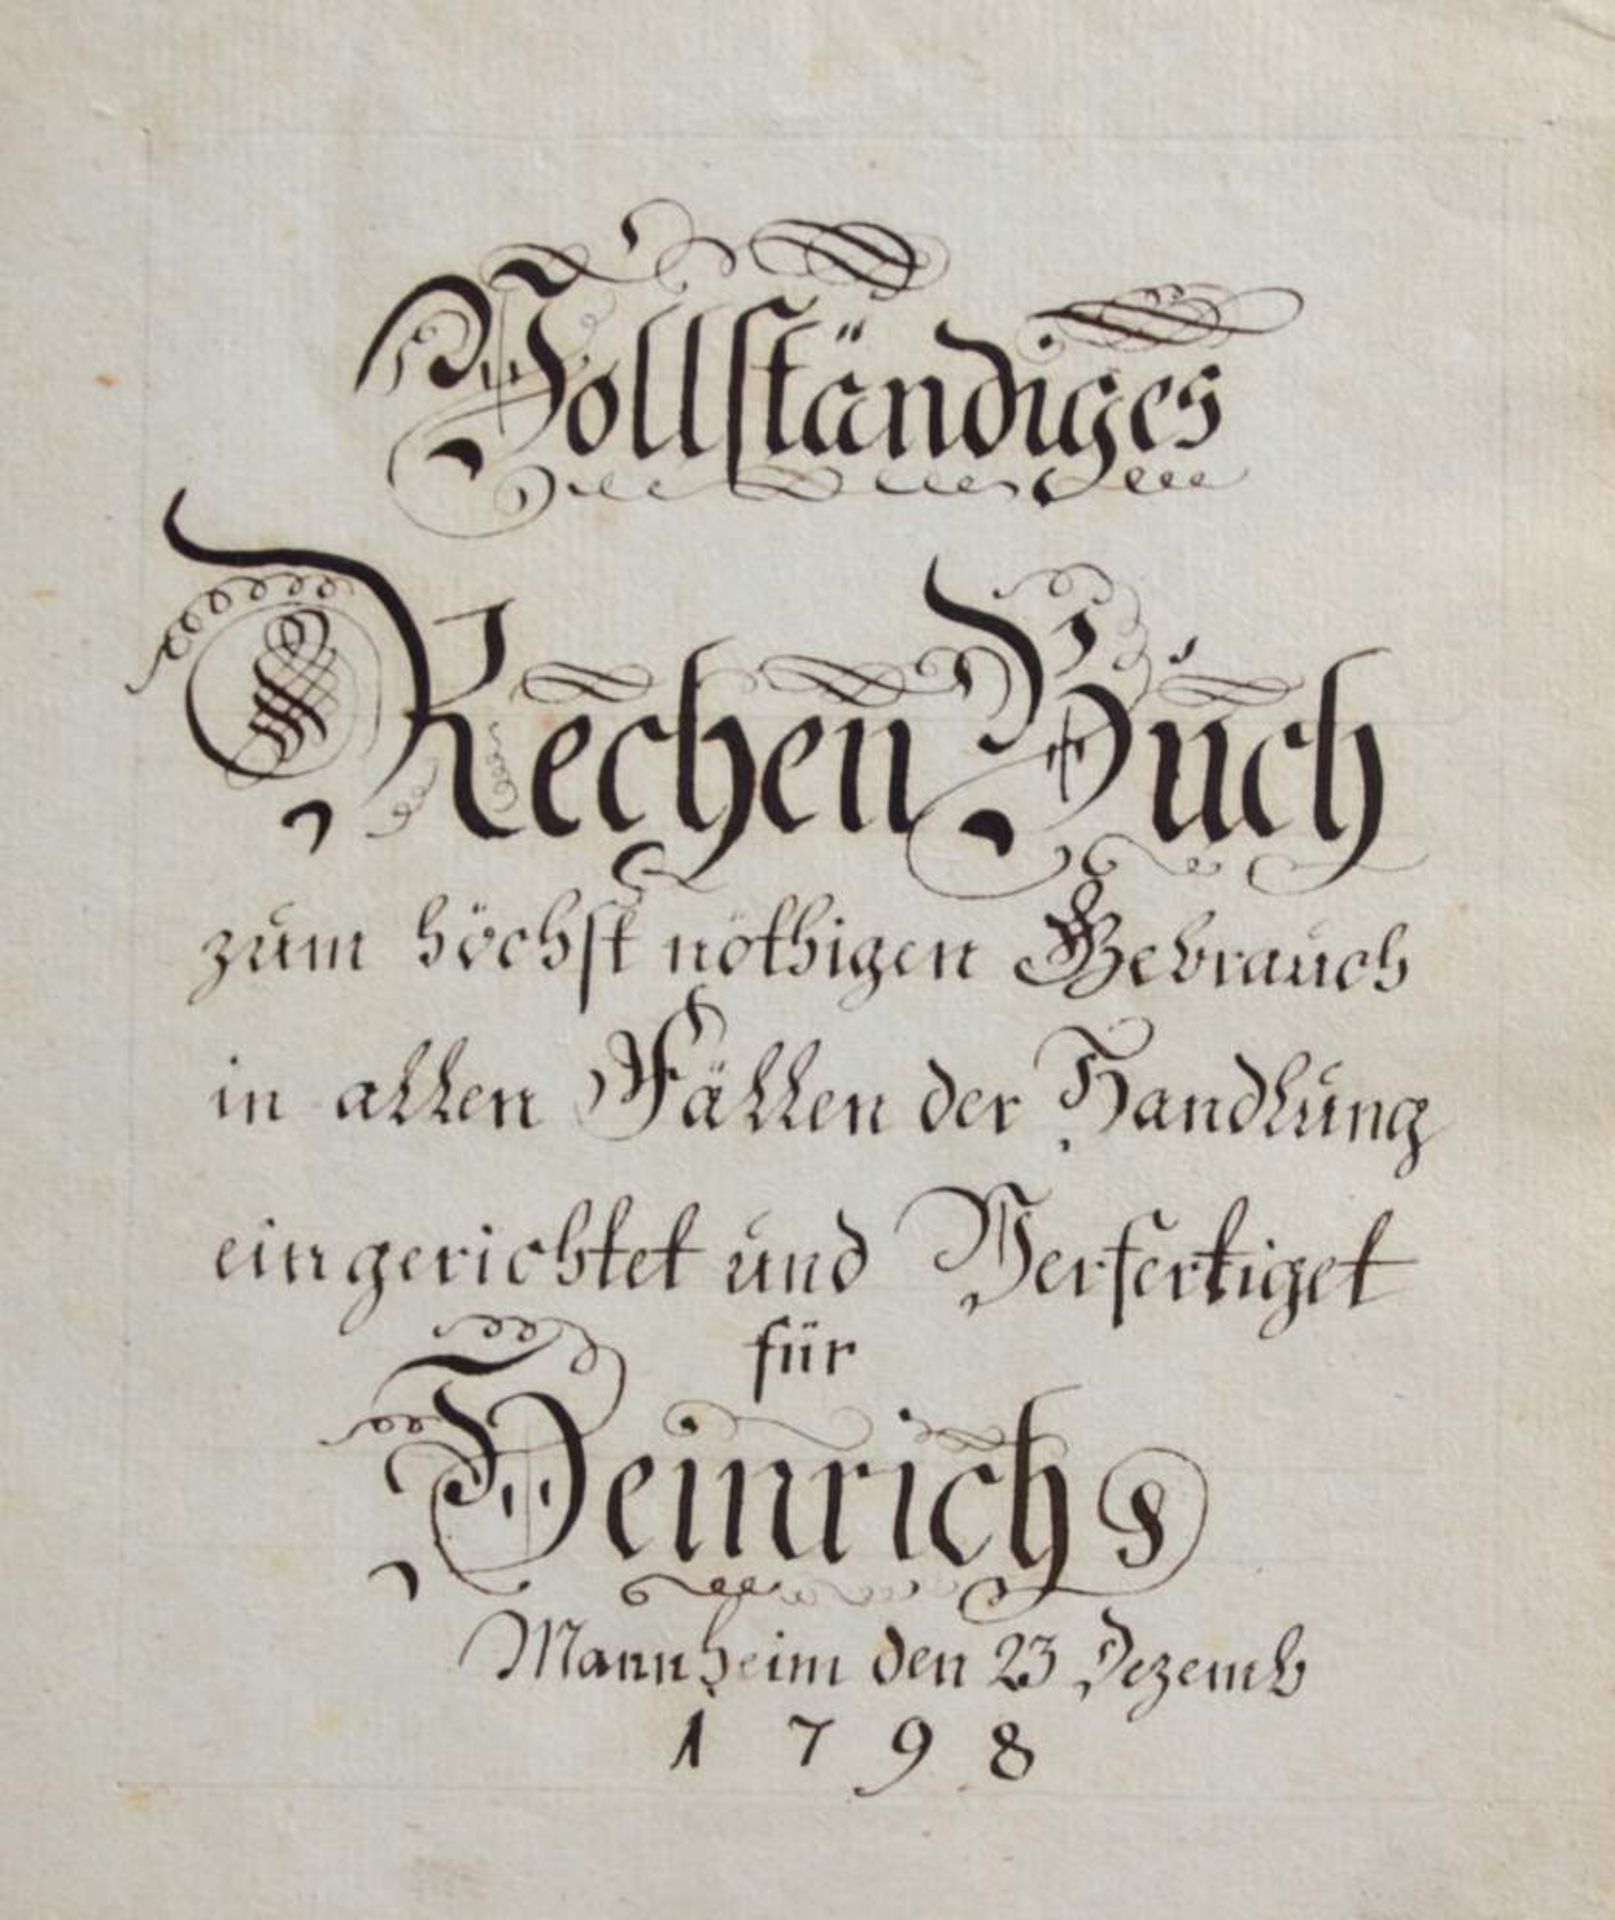 Vollständiges
Rechen Buch
zum höchst nöthigen Gebrauch
in allen Fällen der Handlung
eingerichtet und Verfertiget
für
Heinrichs
Mannheim den 23 Dezemb
1798